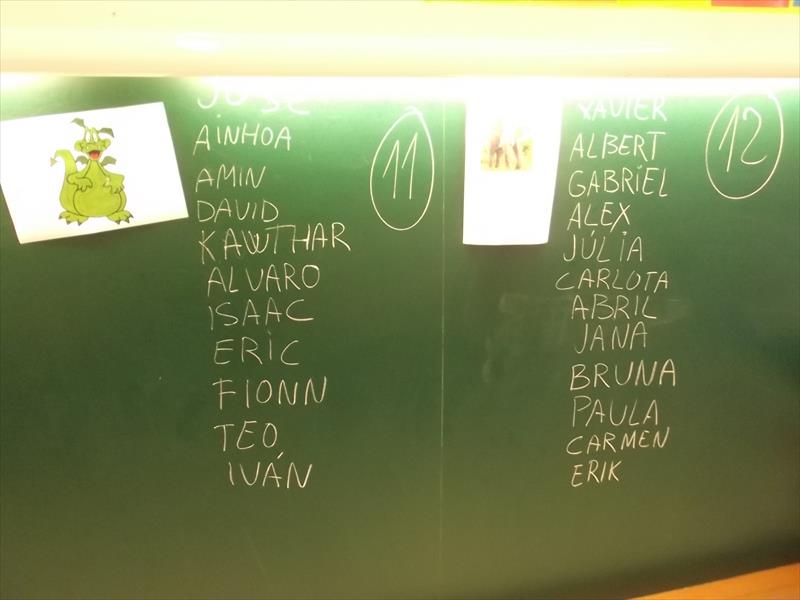 JOSE
AINHOA
AMIN
DAVID
KAWTHAR
ALVARO
ISAAC
ERIC
FIONN
TEO
IVÁN
11
XAVIER
ALBERT
GABRIEL
ALEX
JÚLIA
CARLOTA
ABRIL
JANA
BRUNA
PAULA
CARMEN
ERIK
12